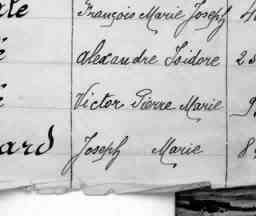 François Marie Joseph
Alexandre Isidore
Victor Pierre Marie
ard Joseph Marie